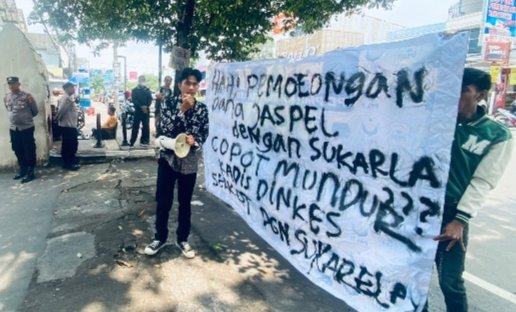 HAJI PEMOTONGAN
DANA JASPEL
DENGAN SUKARLA
COPOT MUNDUR???
KADIS DINKES
DGN SUKARELA
M